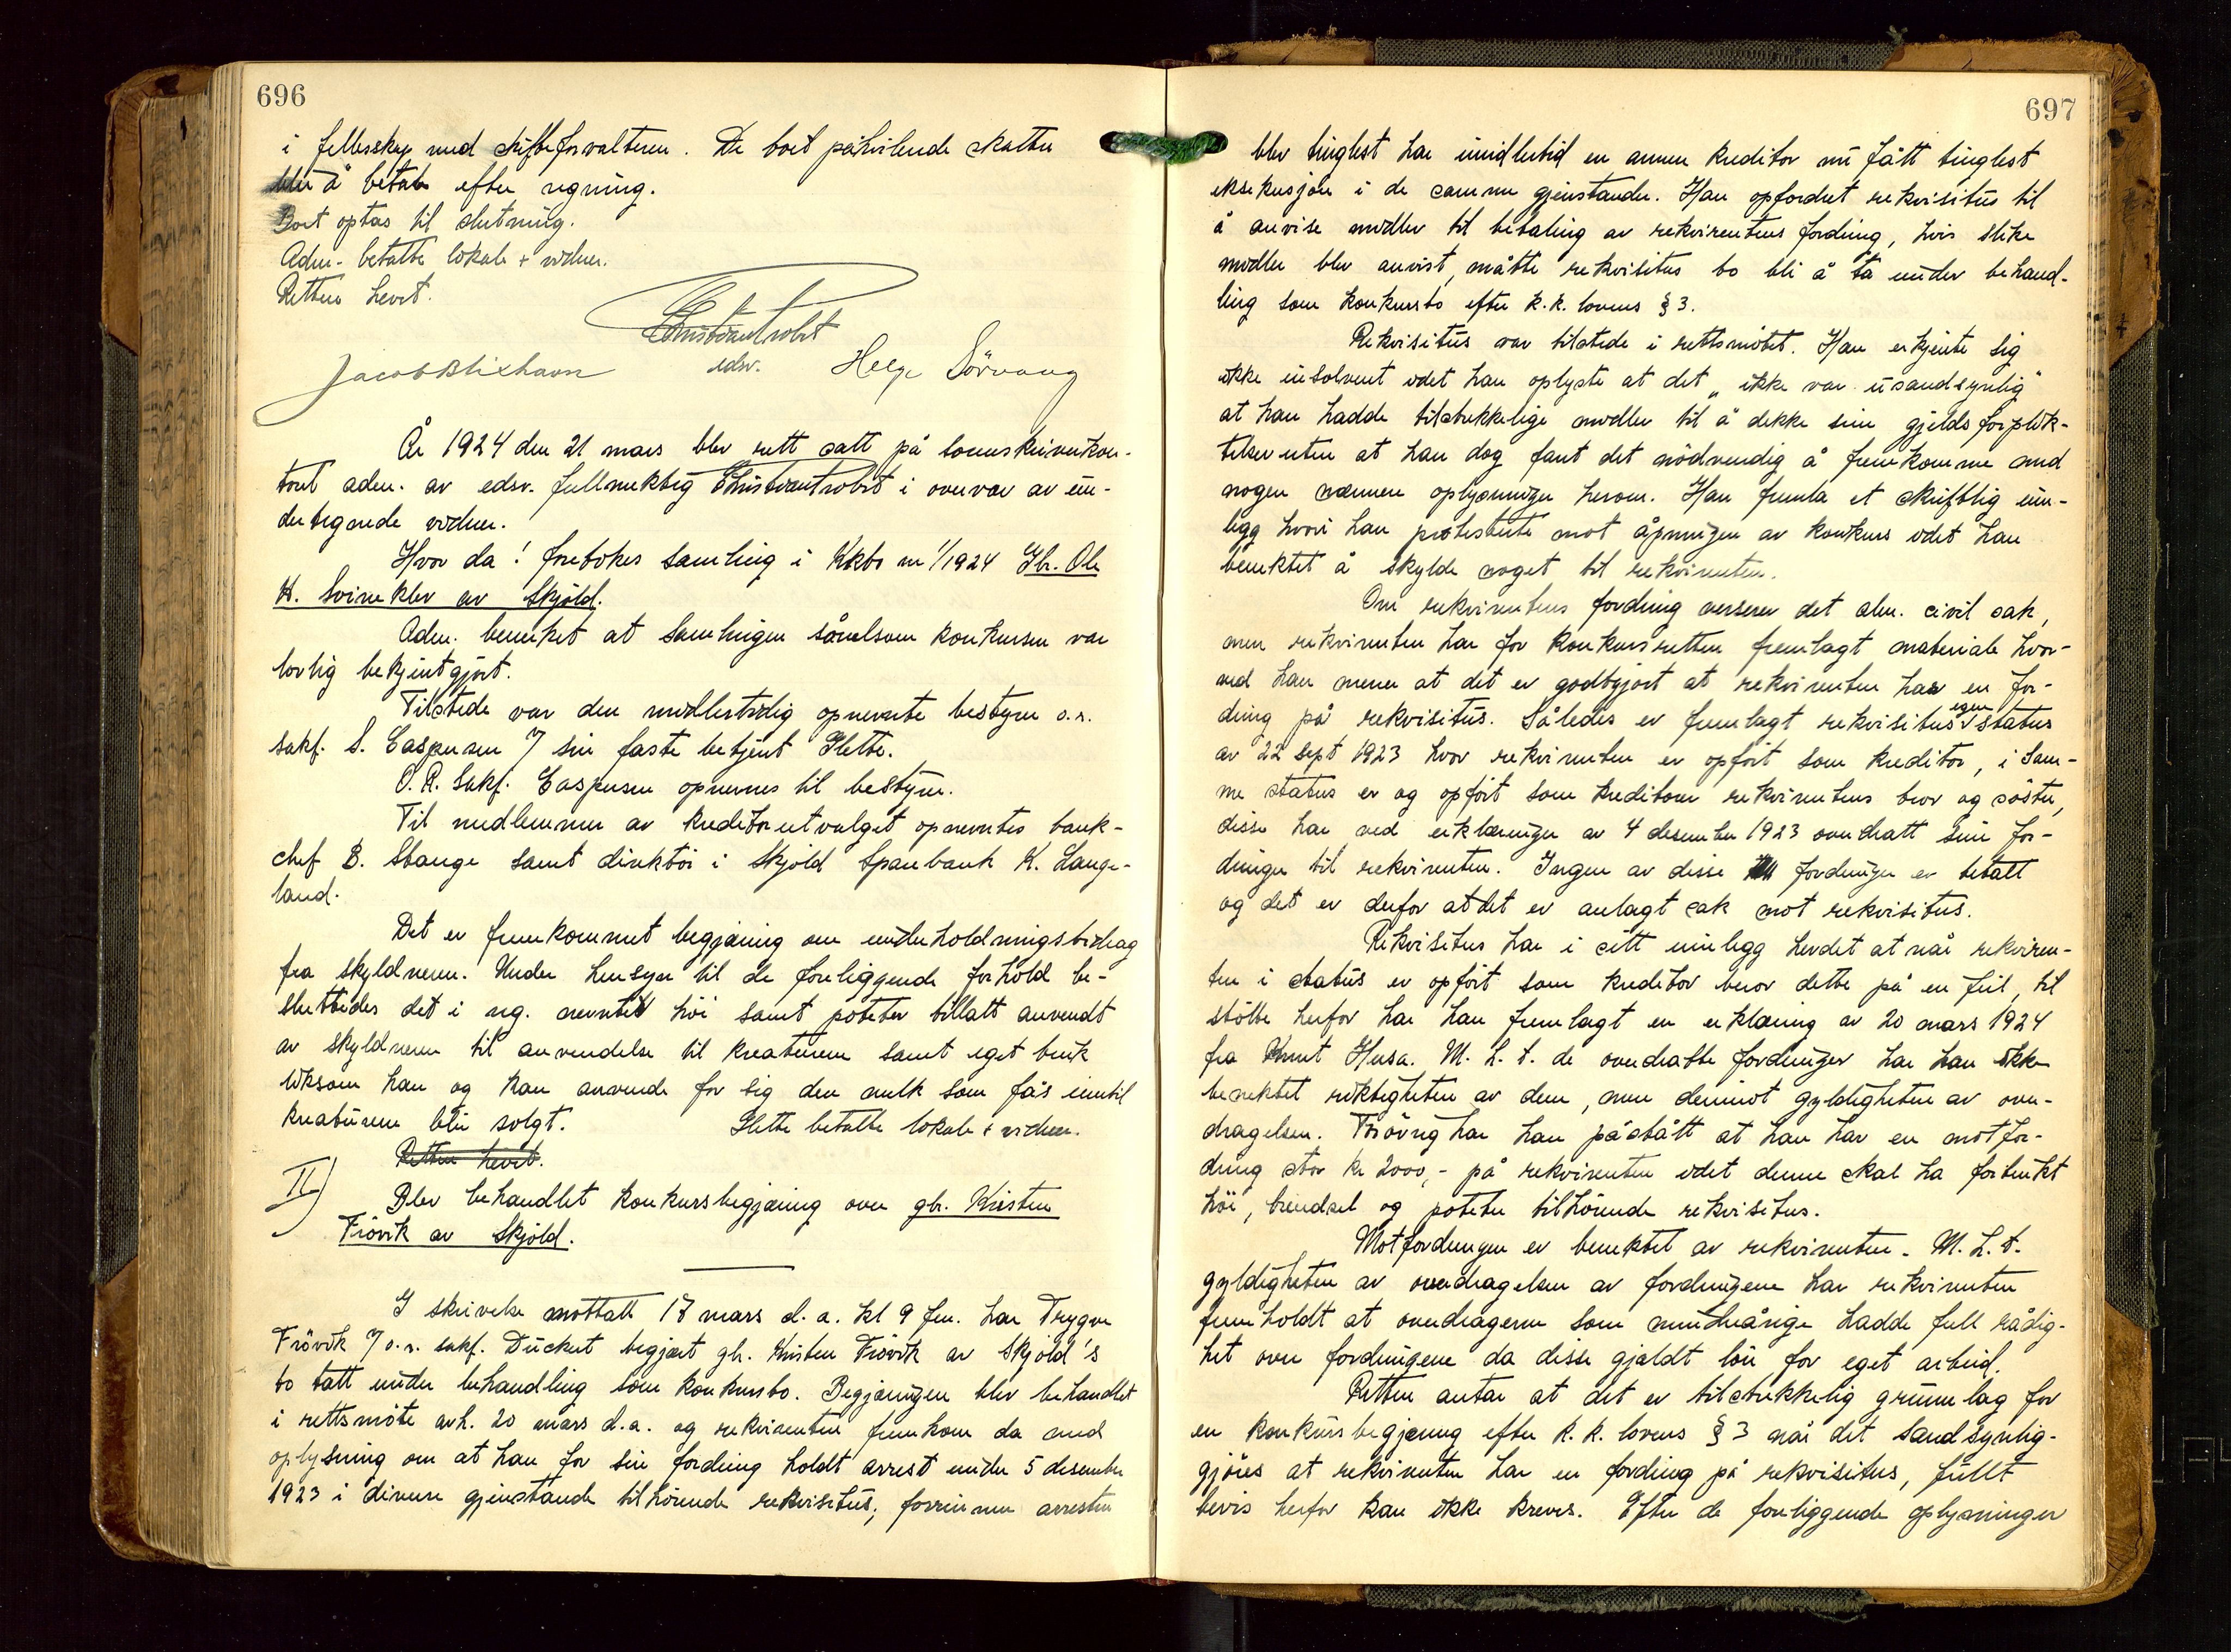 696
i fellesskap med skifteforvalteren. De boet påhvilende skatter
blir å betale efter regning.
Boet optas til slutning.
Adm. betalte lokale + vidner.
Retten hevet.
Christian Trobst
edsv.
Jacob Blixhavn
Helge Sörvaag
År 1924 den 21 mars blev rett satt på sorenskriverkon-
toret adm. av edsv. fullmektig Christian Trobst i overvær av un-
dertegnede vidner.
Hvor da! foretokes samling i Kkbo nr 1/1924 Gbr. Ole
H. Svineklev av Skjold.
Adm. bemerket at samlingen såvelsom konkursen var
lovlig bekjentgjort.
Tilstede var den midlertidig opnevnte bestyrer o.r.
sakf. S. Caspersen v/ sin faste betjent Flotte.
O.R. Sakf. Caspersen opnevnes til bestyrer.
Til medlemmer av kreditorutvalget opnevntes bank-
chef B. Stange samt direktör i Skjold Sparebank K. Lange-
land.
Det er fremkommet begjæring om underholdningsbidrag
fra skyldneren. Under hensyn til de foreliggende forhold be-
sluttedes det i reg. nevnte höi samt poteter tillatt anvendt
av skyldneren til anvendelse til kreaturene samt eget bruk
liksom han og kan anvende for sig den melk som fås inntil
kreaturene blir solgt.
Flotte betalte lokale + vidner.
Retten hevet.
II)
Blev behandlet konkursbegjæring over gbr. Kristen
Frövik av Skjold.
I skrivelse mottatt 17 mars d.a. kl 9 fm. har Trygve
Frövik v/ o.r. sakf. Duckert begjært gbr. Kristen Frövik av Skjold's
bo tatt under behandling som konkursbo. Begjæringen blev behandlet
i rettsmöte avh. 20 mars d.a. og rekvirenten fremkom da med
oplysning om at han for sin fordring holdt arrest under 5 desember
1923 i diverse gjenstande tilhörende rekvisitus; forinnen arresten
697
blev tinglest har imidlertid en annen kreditor nu fått tinglest
eksekusjon i de samme gjenstander. Han opfordret rekvisitus til
å anvise midler til betaling av rekvirentens fordring, hvis slike
midler blev anvist, måtte rekvisitus bo bli å ta under behand-
ling som konkursbo efter k.k. lovens § 3.
Rekvisitus var tilstede i rettsmötet. Han erkjente sig
ikke insolvent idet han oplyste at det „ikke var usandsynlig"
at han hadde tilstrekkelige midler til å dekke sine gjeldsforplik-
telser uten at han dog fant det nödvendig å fremkomme med
nogen nærmere oplysninger herom. Han fremla et skriftlig inn-
legg hvori han protesterte mot åpningen av konkurs idet han
benektet å skylde noget til rekvirenten.
Om rekvirentens fordring verserer det alm. civil sak,
men rekvirenten har for konkursretten fremlagt materiale hvor-
ved han mener at det er godtgjort at rekvirenten har en for-
dring på rekvisitus. Således er fremlagt rekvisitus egen status
av 22 sept 1923 hvor rekvirenten er opfört som kreditor, i sam-
me status er og opfört som kreditorer rekvirentens bror og söster,
disse har ved erklæringer av 4 desember 1923 overdratt sine for-
dringer til rekvirenten. Ingen av disse fordringer er betalt
og det er derfor at det er anlagt sak mot rekvisitus.
Rekvisitus har i sitt innlegg hevdet at når rekviren-
ten i status er opfört som kreditor beror dette på en feil, til
stötte herfor har han fremlagt en erklæring av 20 mars 1924
fra Knut Husa. M.h.t. de overdratte fordringer har han ikke
benektet riktigheten av dem, men derimot gyldigheten av over-
dragelsen. Forövrig har han påstått at han har en motfor-
dring stor kr 2000,- på rekvirenten idet denne skal ha forbrukt
höi, brendsel og poteter tilhörende rekvisitus.
Motfordringen er benektet av rekvirenten. M.h.t.
gyldigheten av overdragelsen av fordringene har rekvirenten
fremholdt at overdragerne som mindreårige hadde full rådig-
het over fordringene da disse gjaldt lön for eget arbeid.
Retten antar at det er tilstrekkelig grunnlag for
en konkursbegjæring efter k.k. lovens § 3 når det sandsynlig-
gjöres at rekvirenten har en fordring på rekvisitus, fullt
bevis herfor kan ikke kreves. Efter de foreliggende oplysninger